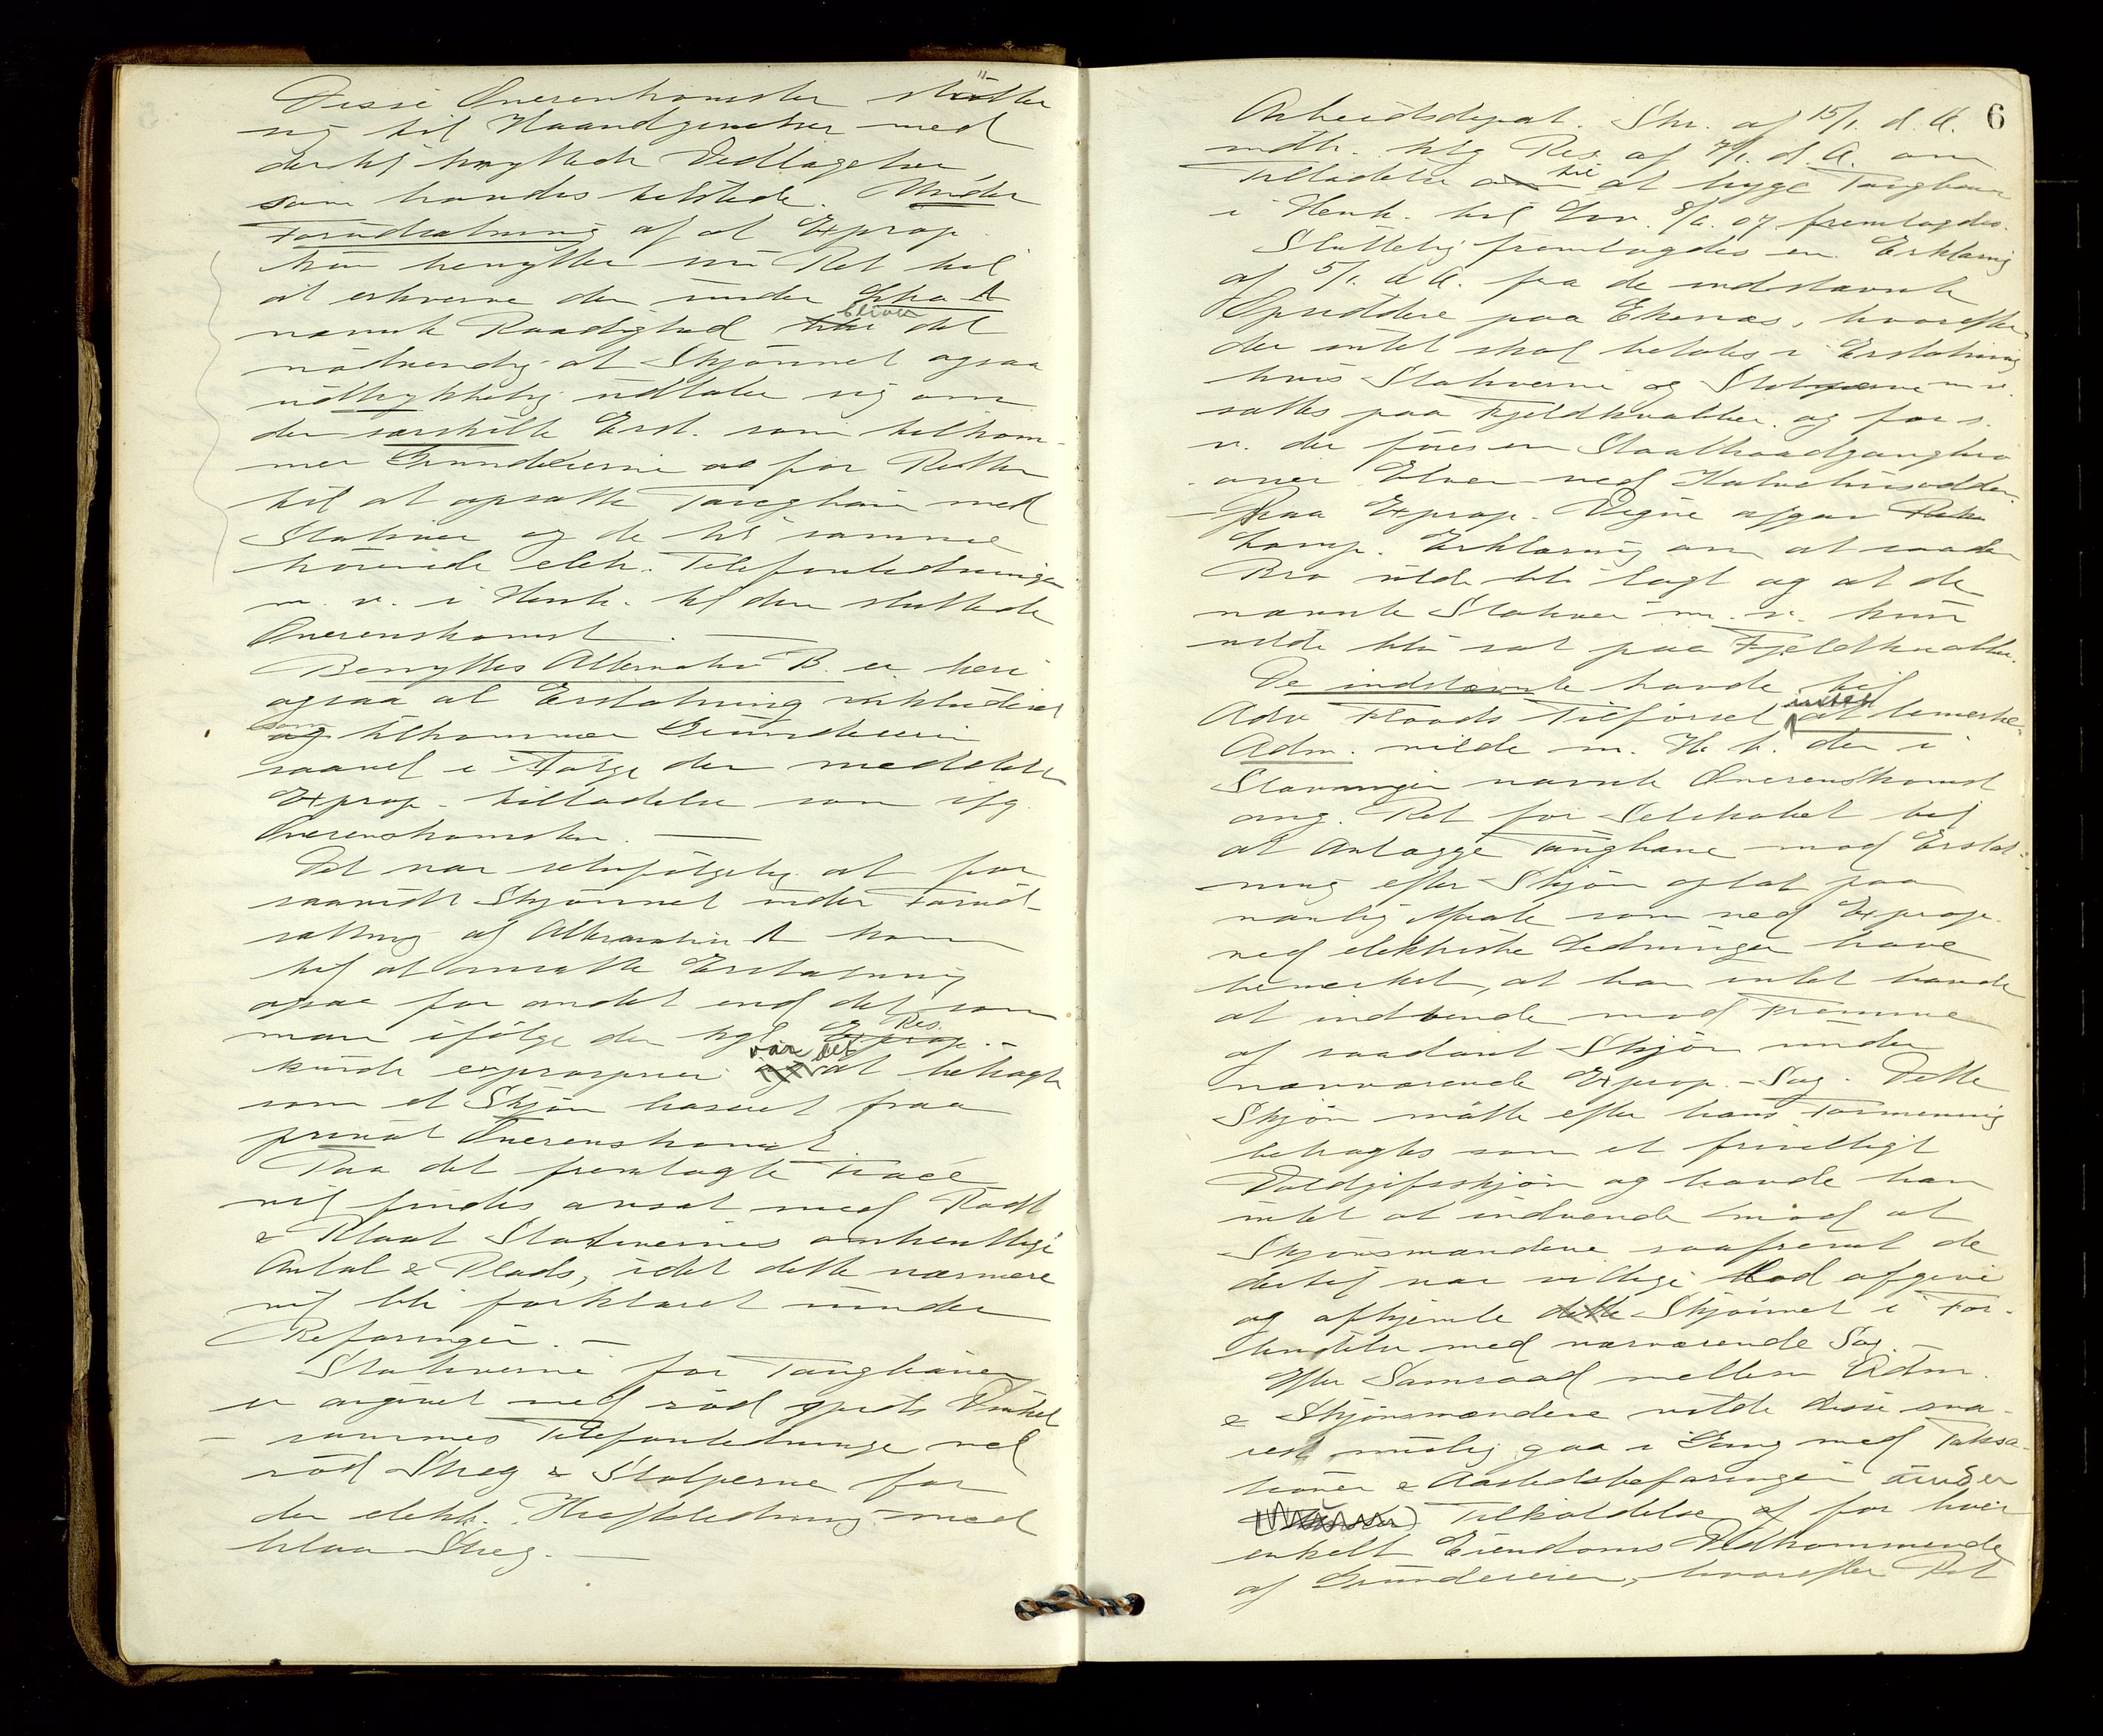 Disse Overenskomster støtter
sig til Haandgivelser med
dertil knyttede Vedtagelser
som havdes tilstede. Under
Forudsætning af at Exprop.
kun benytter sin Ret til
at erhverve den under Litra A
nævnte Raadighed bliver det
nødvendig at Skjønnet ogsaa
udtrykkelig udtaler sig om
den særskilte Erst. som tilkom-
mer Grundeierne for Retten
til at opsætte Taugbane med
Stativer og de til samme
hørende elek. Telefonledninger
m. v. i Henh. til den sluttede
Overenskomst. —
Benyttes Alternativ B. er heri
ogsaa al Erstatning inkluderet
som tilkommer Grundeierne
saavel i Følge den meddelte
Exprop. tilladelse som ifg.
Overenskomsten. —
Det var selvfølgelig at for
saavidt Skjønnet under Forud-
sætning af Alternativ A kom
til at ansætte Erstatning
ogsaa for andet end det som
man ifølge den kgl. Res.
kunde expropriere var det at betragte
som et Skjøn baseret paa
privat Overenskomst.
Paa det fremlagte Tracé
vil findes avsat med Rødt
& Blaat Stativernes omtentlige
Antal & Plads, idet dette nærmere
vil bli forklaret under
Befaringen. —
Stativerne for Taugbanen
er angivet med rød spids Vinkel
— sammes Telefonledninge ved
rød Streg & Stolperne for
den elektr. Kraftledning med
blaa Streg. —
6
Arbeidsdepat. Skr. af 15/1. d. A.
indh. klg Res. af 7/1. d. A. om
Tilladelse til at bygge Taugbane
i Henh. til Lov. 8/6. 07 fremlagdes.
Sluttelig fremlagdes en Erklæring
af 5/1. d A. fra de indstævnte
Opsiddere paa Ekenæs, hvorefter
der intet skal betales i Erstatning
hvis Stativerne og Stolperne m. v.
sættes paa Fjeldknatter. og for s.
v. der føres en Staaltraadgangbro
over Elven ved
— Paa Exprop. Vegne afgav
Komp. Erklæring om at saadan
Bro vilde bli lagt og at de
nævnte Stativer m. v. kun
vilde bli sat paa Fjeldknatter.
De indstævnte havde til
Adv Floods Tilførsel intet at bemerke.
Adm. vilde m. H. t. den i
Stævningen nævnte Overenskomst
ang. Ret for Selskabet til
at Anlægge Taugbane mod Erstat-
ning efter Skjøn optat paa
vanlig Maate som ved Exprop.
ved elektriske Ledninger have
bemerket, at han intet havde
at indvende mod Fremme
af saadant Skjøn under
nærværende Exprop. - Sag. Dette
Skjøn måtte efter hans Formening
betragtes som et frivilligt
Voldgiftsskjøn og havde han
intet at indvende mod at
Skjønsmændene saafremt de
dertil var villige lod afgive
og afhjemle Skjønnet i For-
bindelse med nærværende Sag. —
Efter Samraad mellem Adm.
& Skjønsmændene vilde disse sna-
rest mulig gaa i Gang med Taksa-
tioner & Aastedsbefaringen under
Tilkaldelse af for hver
enkelt Eiendoms Vedkommende
af Grundeieren, hvorefter Ret